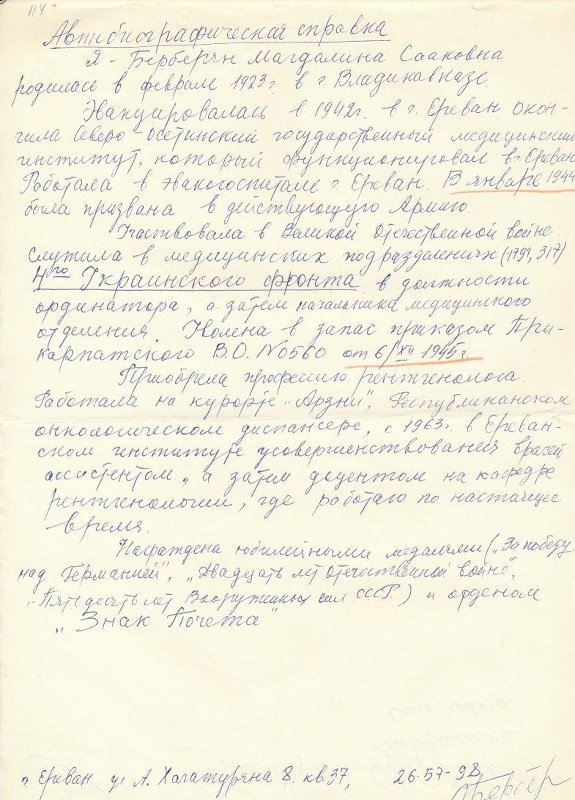 114
Автобиографическая справка
Я - Берберян Магдалина Сааковна
родилась в феврале 1923г. в г. Владикавказе.
Эвакуировалась в 1942г. в г. Ереван Окон-
чила Северо-Осетинский государственный медицинский
институт, который функционировал в г. Ереван
Работала в эвакогоспитале г. Ереван. В январе 1944
была призвана в действующую Армию.
Участвовала в Великой Отечественной войне
служила в медицинских подразделениях (1791, 317)
4го Украинского фронта в должности
ординатора, а затем начальника медицинского
отделения. Уволена в запас приказом При-
карпатского В.О. N0560 от 6/XII 1945г.
Приобрела профессию рентгенолога.
Работала на курорте "Арзни", Республиканском
онкологическом диспансере, с 1963г. в Ереван-
ском институте усовершенствования врачей
ассистентом, а затем доцентом на кафедре
рентгенологии, где работаю по настоящее
время.
Награждена юбилейными медалями („За победу
над Германией", „Двадцать лет Отечественной войне",
„Пятьдесять лет Вооруженных сил СССР") и орденом
„Знак Почета"
г. Ереван ул А. Хачатуряна 8 кв. 37, 26-57-98